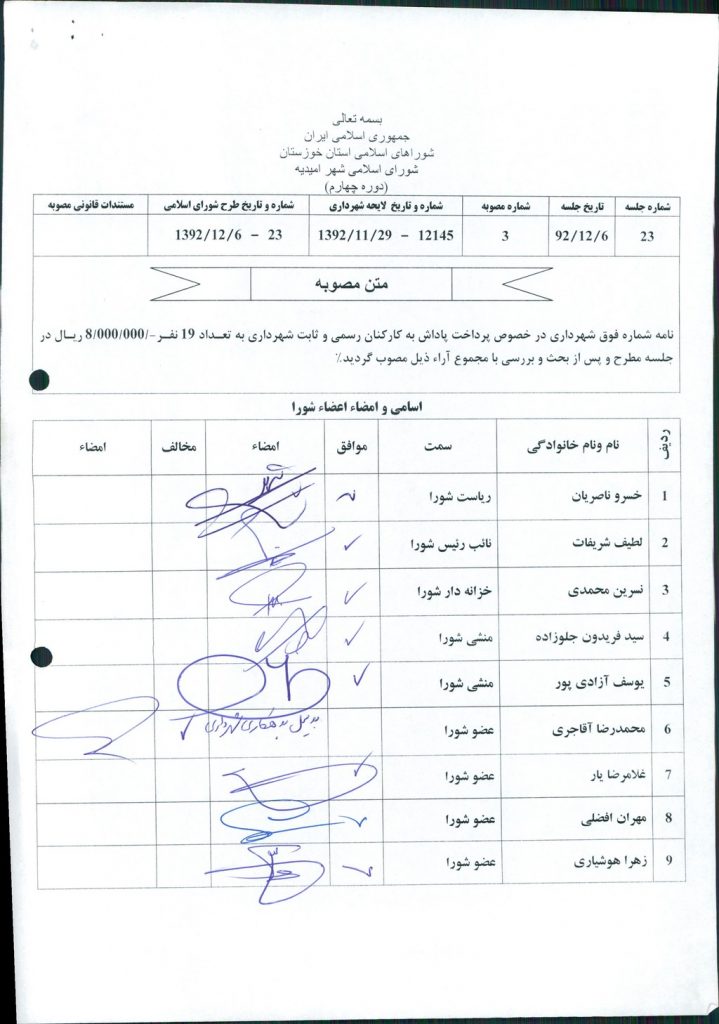 بسمه تعالی
جمهوری اسلامی ایران
شوراهای اسلامی استان خوزستان
شورای اسلامی شهر امیدیه
(دوره چهارم)
شماره جلسه تاریخ جلسه شماره مصوبه شماره و تاریخ لایحه شهرداری شماره و تاریخ طرح شورای اسلامی مستندات قانونی مصوبه
23 92/12/6 3 12145 – 1392/11/29 23 – 1392/12/6
متن مصوبه
نامه شماره فوق شهرداری در خصوص پرداخت پاداش به کارکنان رسمی و ثابت شهرداری به تعداد 19 نفر -/8/000/000 ریال در
جلسه مطرح و پس از بحث و بررسی با مجموع آراء ذیل مصوب گردید٪
اسامی و امضاء اعضاء شورا
ردیف نام ونام خانوادگی سمت موافق امضاء مخالف امضاء
1 خسرو ناصریان ریاست شورا
2 لطیف شریفات نائب رئیس شورا ✓
3 نسرین محمدی خزانه دار شورا ✓
4 سید فریدون جلوزاده منشی شورا ✓
5 یوسف آزادی پور منشی شورا ✓
6 محمدرضا آقاجری عضو شورا ✓
7 غلامرضا یار عضو شورا ✓
8 مهران افضلی عضو شورا ✓
9 زهرا هوشیاری عضو شورا ✓